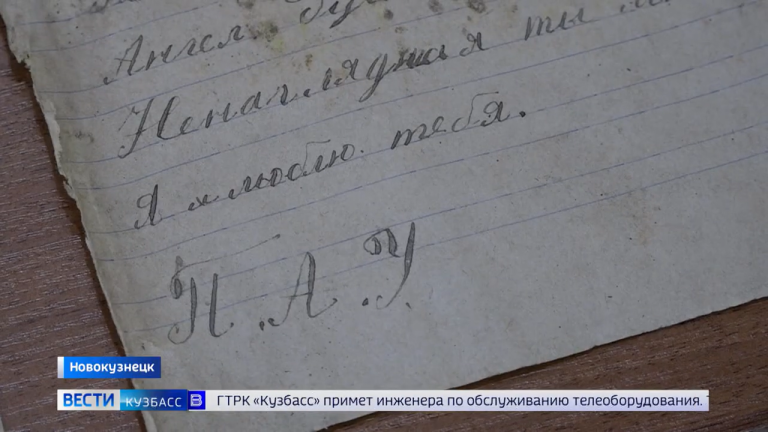 Ангел
Ненаглядная ты
Я люблю тебя.
П.А.У
Новокузнецк
ВЕСТИ КУЗБАСС В ГТРК «Кузбасс» примет инженера по обслуживанию телеоборудования.